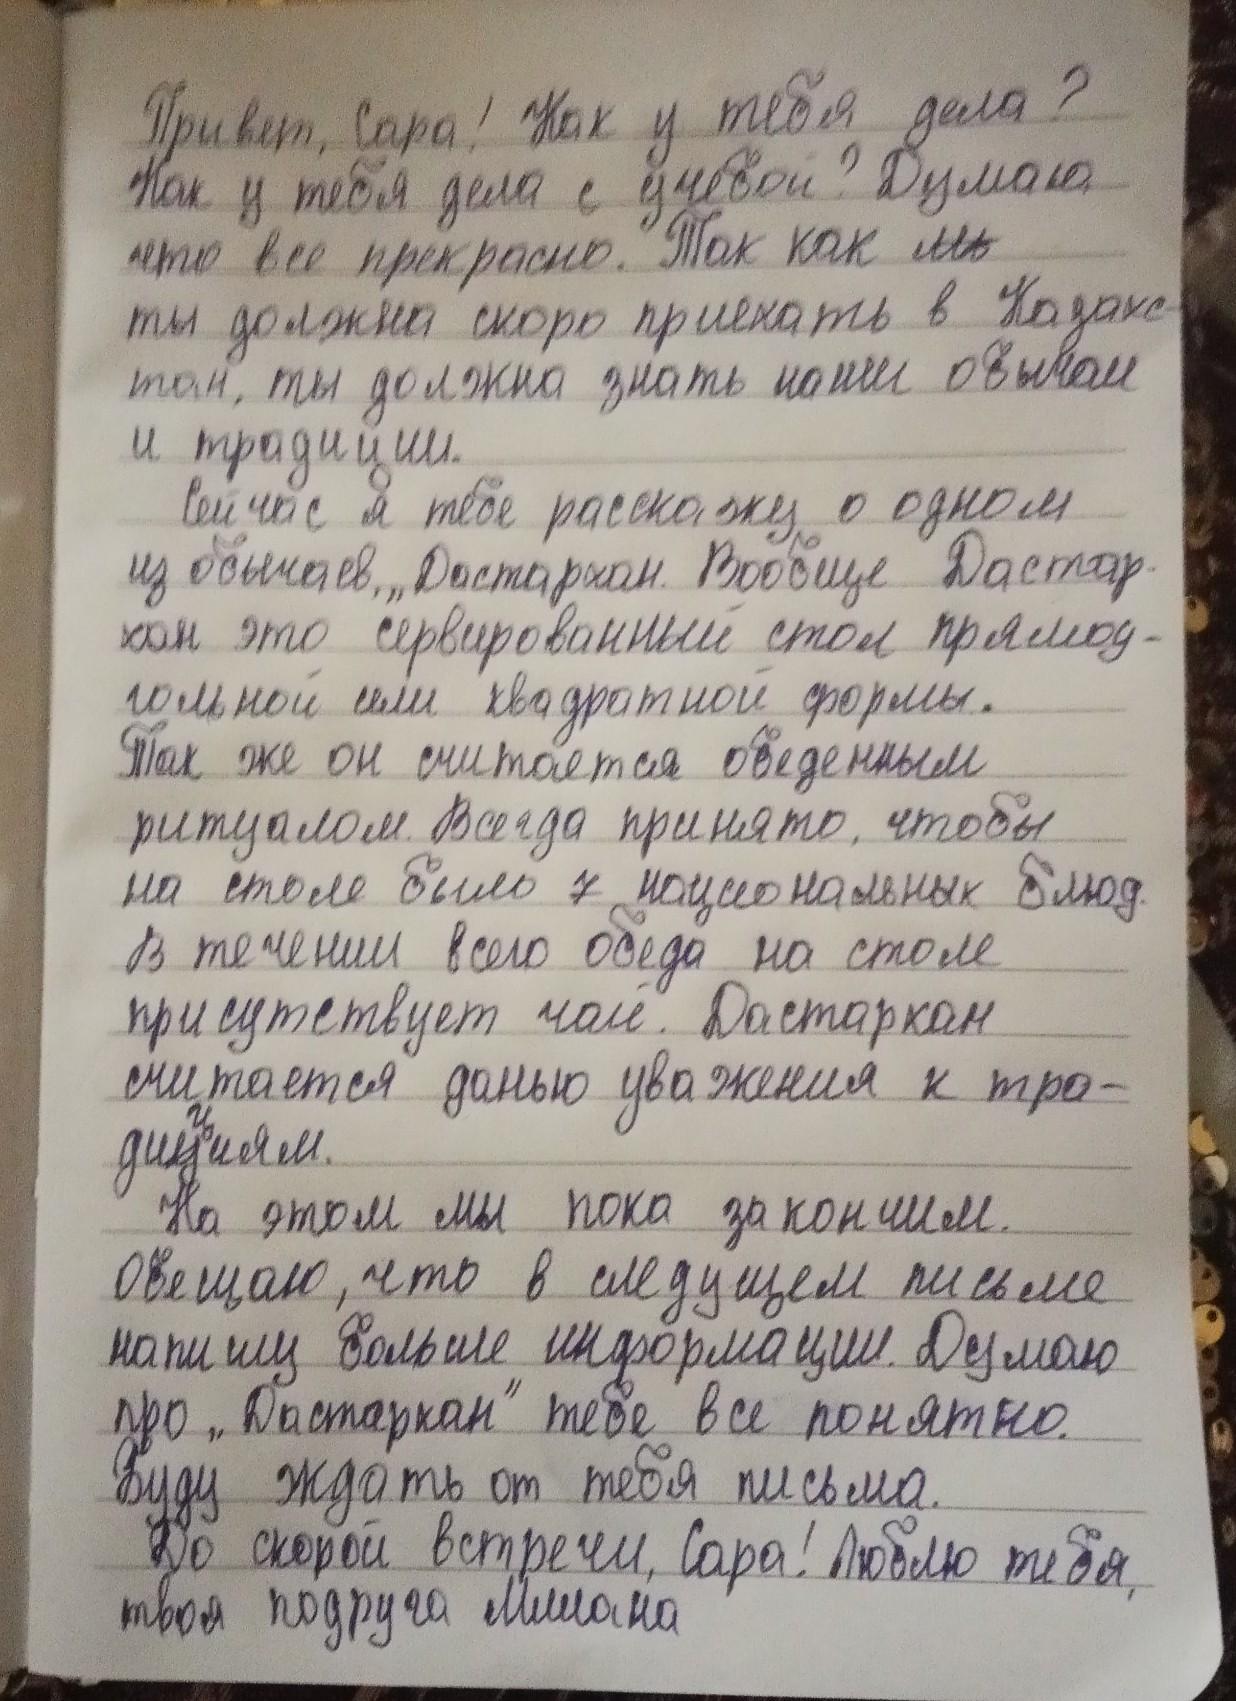 Привет, Сара! Как у тебя дела?
Как у тебя дела с учебой? Думаю
что все прекрасно. Так как мы
ты должна скоро приехать в Казахс-
тан, ты должна знать наши обычаи
и традиции.
Сейчас я тебе расскажу о одном
из обычаев, „Дастархан. Вообще Дастар-
хан это сервированный стол прямоу-
гольной или квадратной формы.
Так же он считается обеденным
ритуалом. Всегда принято, чтобы
на столе было 7 национальных блюд.
В течении всего обеда на столе
присутствует чай. Дастархан
считается данью уважения к тра-
дициям.
На этом мы пока закончим.
Обещаю, что в следущем письме
напишу больше информации. Думаю
про „Дастархан" тебе все понятно.
Буду ждать от тебя письма.
До скорой встречи, Сара! Люблю тебя,
твоя подруга Милана